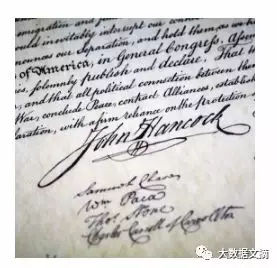 emigration and
would inevitably interrupt our
our Separation, and hold them, as we
of America, in General Congress,
solemnly publish and declare, That
, and that all political connection between them
War, conclude Peace, contract Alliances, establish
aration, with a firm reliance on the protection
John Hancock
Samuel Chase
Wm Paca
Thos Stone
Charles Carroll of Carrollton
大数据文摘